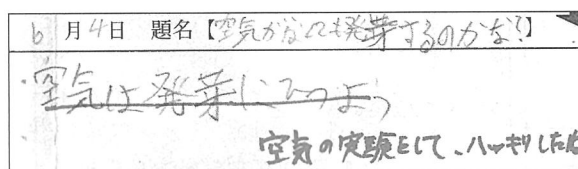 6月4日 題名【空気がなくても発芽するのかな?】
空気は発芽にひつよう
空気の実験をして、ハッキリした